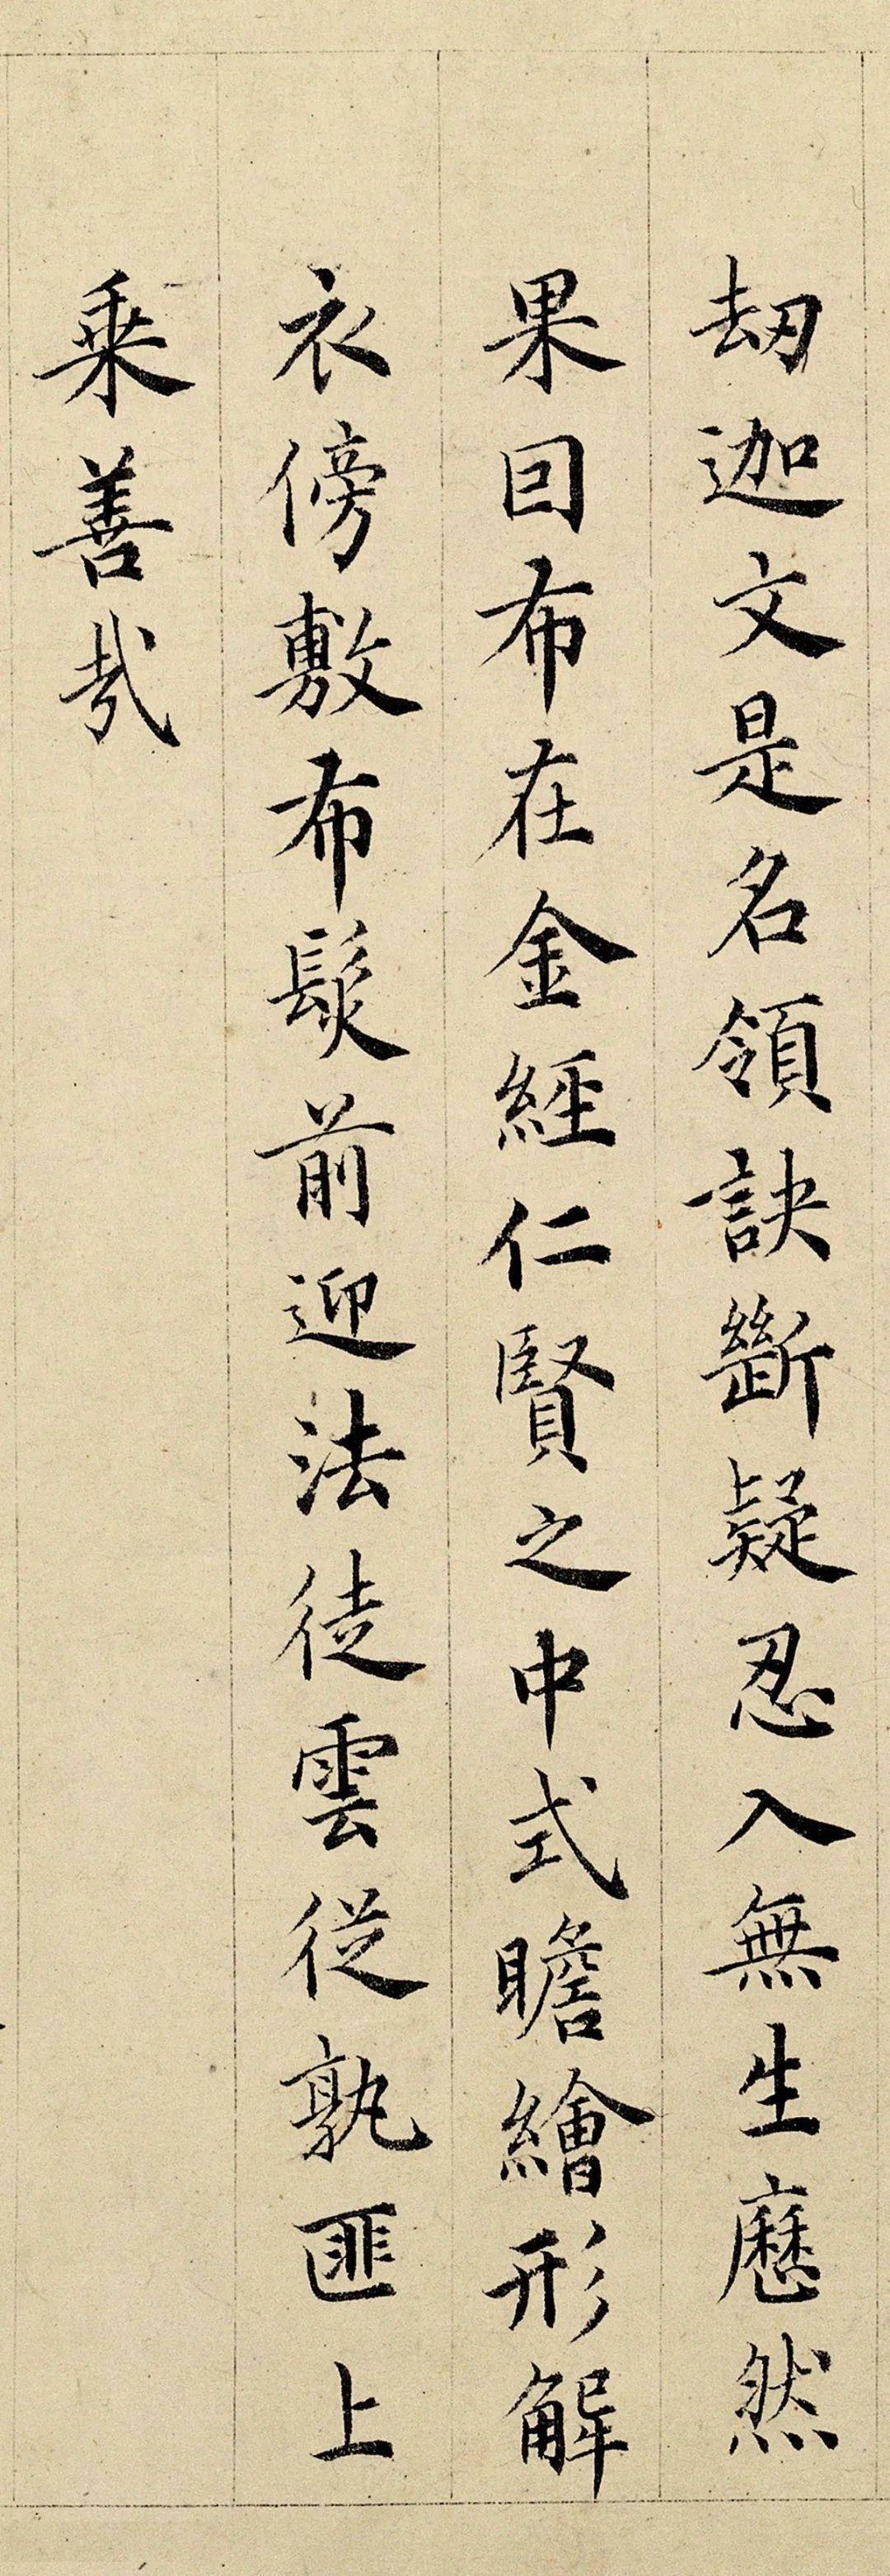 刼迦文是名領訣斷疑忍入無生歷然
果因布在金經仁賢之中式瞻繪形解
衣傍敷布髮前迎法徒雲從孰匪上
乗善哉